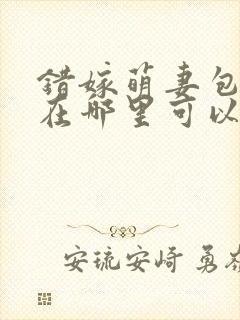 错嫁萌妻包
在哪里可以
安琉安崎 勇